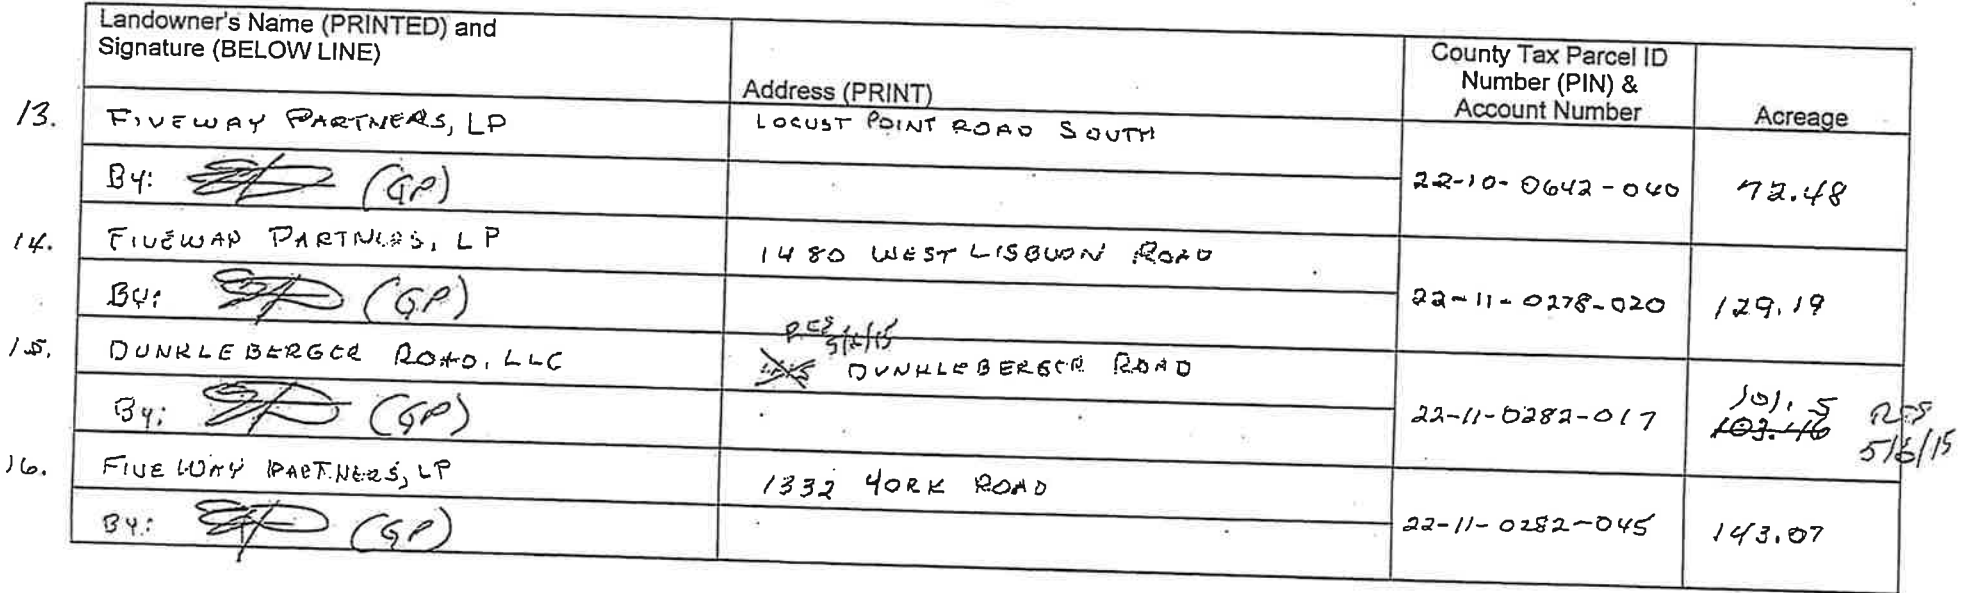 Landowner's Name (PRINTED) and
Signature (BELOW LINE)
Address (PRINT)
County Tax Parcel ID
Number (PIN) &
Account Number
Acreage
13. FIVEWAY PARTNERS, LP LOCUST POINT ROAD SOUTH
By: (GP) 22-10-0642-040 72.48
14. FIVEWAY PARTNERS, LP 1480 WEST LISBURN ROAD
By: (GP) 22-11-0278-020 129.19
RES 5/6/15
15. DUNKLEBERGER ROAD, LLC DUNKLEBERGER ROAD
By: (GP) 22-11-0282-017 101.5 RES
103.46 5/6/15
16. FIVEWAY PARTNERS, LP 1332 YORK ROAD
By: (GP) 22-11-0282-045 143.07